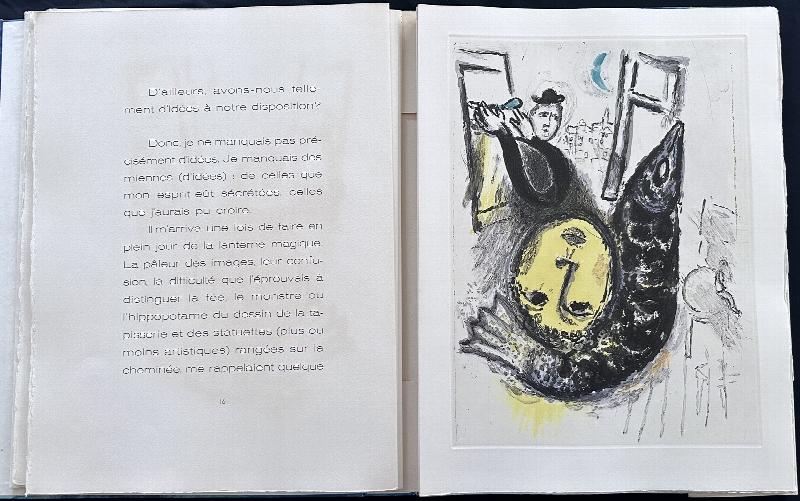 D'ailleurs, avons-nous telle-
ment d'idées à notre disposition?
Donc, je ne manquais pas pré-
cisément d'idées. Je manquais des
miennes (d'idées) : de celles que
mon esprit eût sécrétées, celles
que j'aurais pu croire.
Il m'arrive une fois de faire en
plein jour de la lanterne magique.
La pâleur des images, leur confu-
sion, la difficulté que j'éprouvais à
distinguer la fée, le monstre ou
l'hippopotame du dessin de la ta-
pisserie et des statuettes (plus ou
moins artistiques) rangées sur la
cheminée, me rappelaient quelque
16